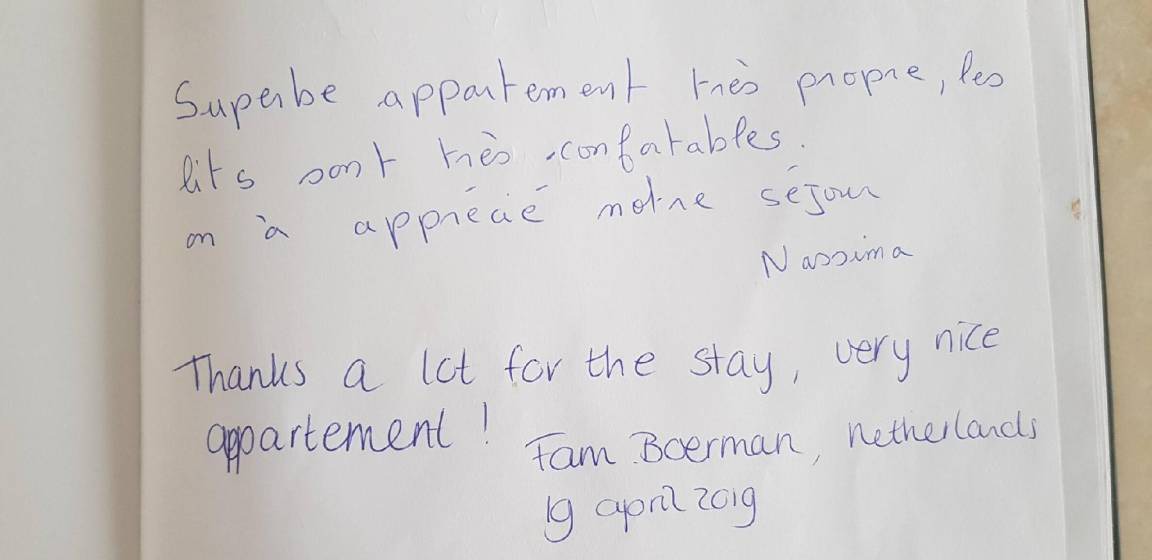 Superbe appartement très propre, les
lits sont très confatables.
on à apprécié notre séjour
Nassima
Thanks a lot for the stay, very nice
appartement !
Fam Boerman, Netherlands
19 april 2019